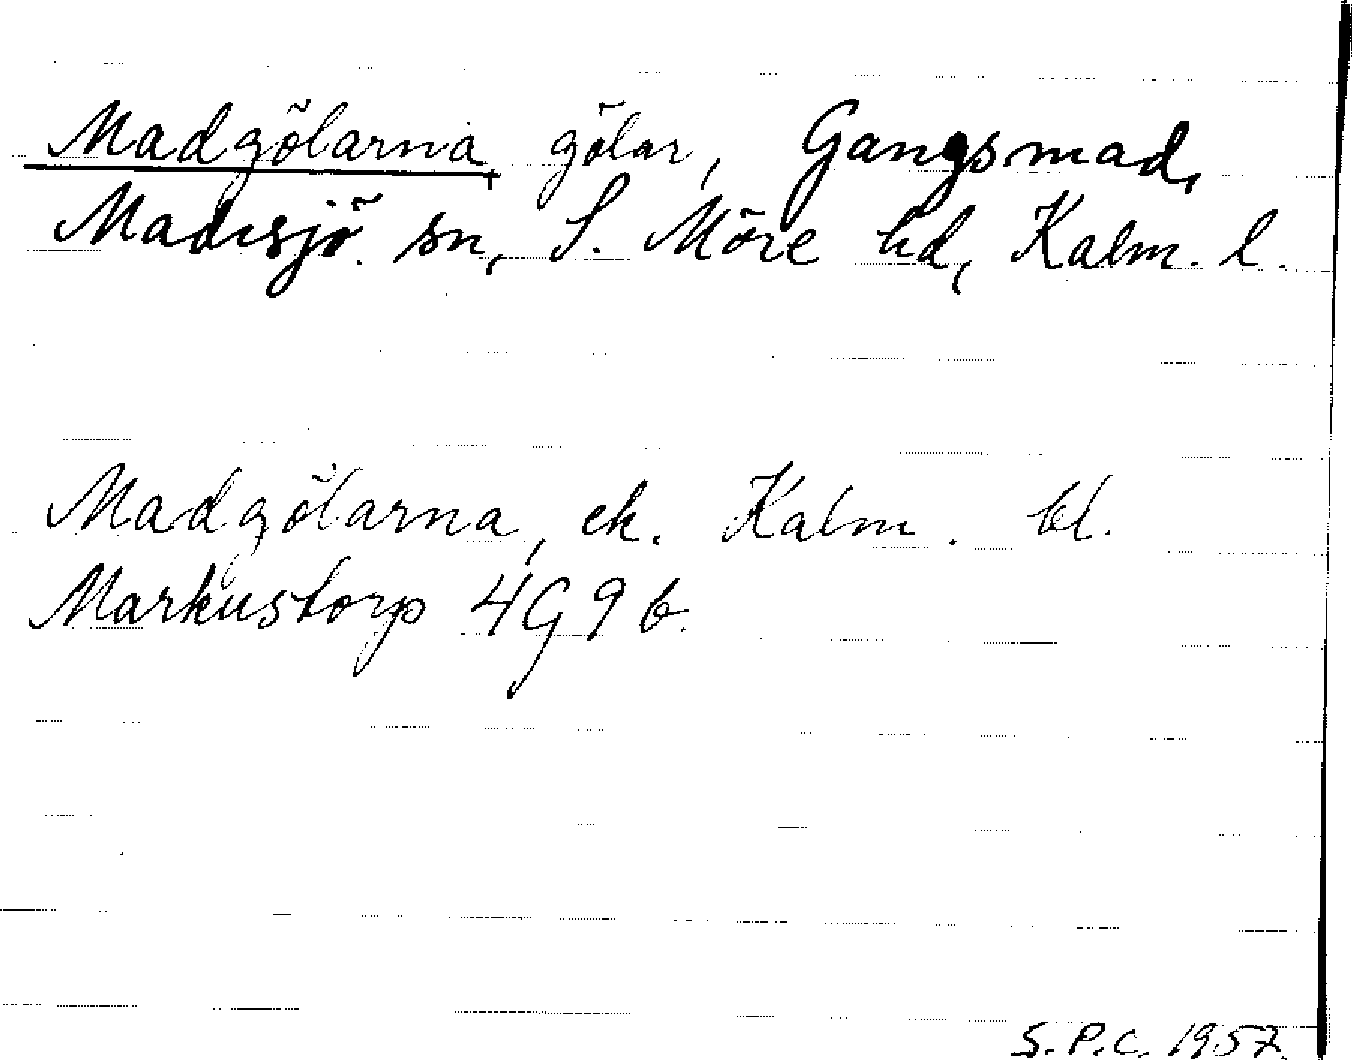 Madgölarna, gölar, Gangsmad,
Madesjö sn, S. Möre hd, Kalm. l.
Madgölarna, ek. Kalm. bl.
Markustorp 4G9b.
S.P.C. 1957.